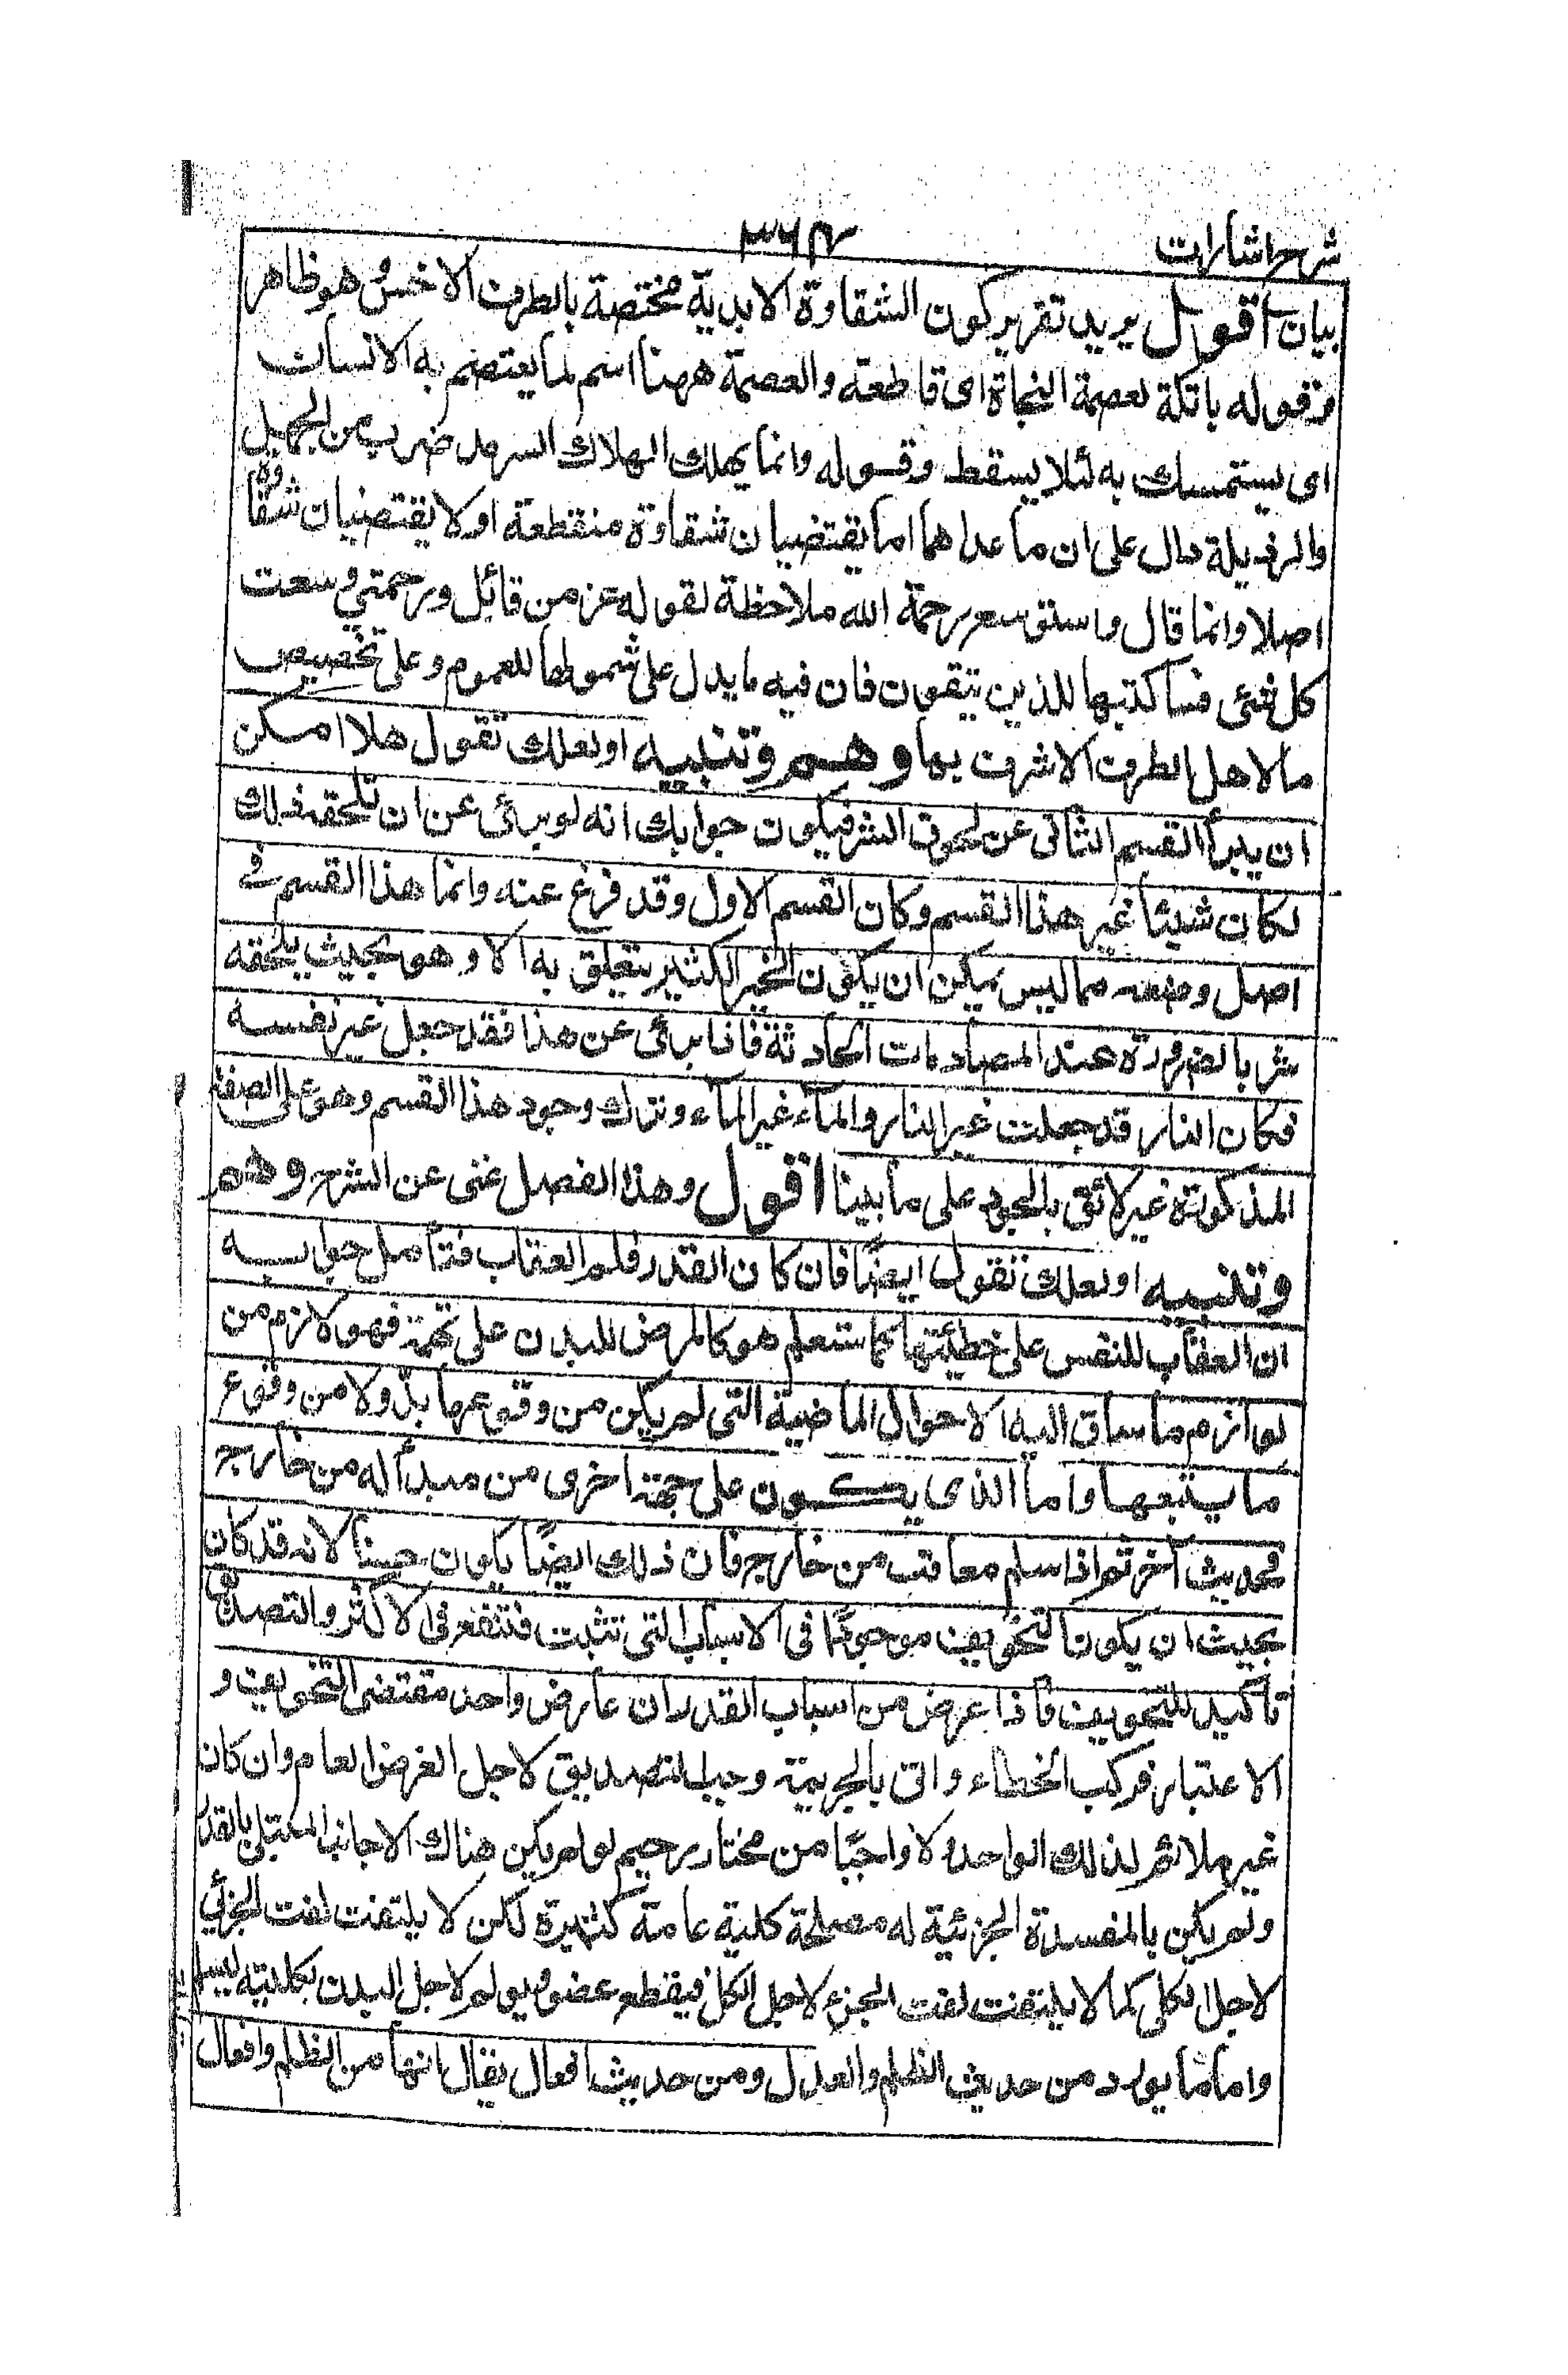 شرح اشارات
۳۶۴
بيان اقول يريد تقرير كون الشقاوة الابدية مختصة بالطرف الاخس وهو ظاهر
وقوله باتكة لعصمة النجاة اى قاطعة والعصمة ههنا اسم لما يعتصم به الانسان
اى يستمسك به لئلا يسقط وقوله وانما يهلك الهلاك السرمد ضرب من الجهل
والرذيلة دال على ان ما عداهما اما يقتضيان شقاوة منقطعة او لا يقتضيان شقاوة
اصلا وانما قال واستوسع رحمة الله ملاحظة لقوله عز من قائل ورحمتي وسعت
كل شئ فساكتبها للذين يتقون فان فيه ما يدل على شمولها للعموم وعلى تخصيص
ما لاهل الطرف الاشرف بها وهم وتنبيه او لعلك تقول هلا امكن
ان يبرأ القسم الثانى عن لحوق الشر فيكون جوابك انه لو برئ عن ان تلحقه ذلك
لكان شيئا غير هذا القسم وكان القسم الاول وقد فرغ عنه وانما هذا القسم فى
اصل وضعه مما ليس يمكن ان يكون الخير الكثير يتعلق به الا وهو بحيث يلحقه
شر بالضرورة عند المصادمات الحادثة فاذا برئ عن هذا فقد جعل غير نفسه
فكان النار قد جعلت غير النار والماء غير الماء وترك وجود هذا القسم وهو على الصفة
المذكورة غير لائق بالجود على ما بينا اقول وهذا الفصل غنى عن الشرح وهم
وتنبيه او لعلك تقول ايضًا فان كان القدر فلم العقاب فتأمل جوابه
ان العقاب للنفس على خطيئتها كما ستعلم هو كالمرض للبدن على نهمه فهو لازم من
لوازم ما ساق اليه الاحوال الماضية التى لم يكن من وقوعها بد ولا من وقوع
ما يتبعها واما الذى يكون على جهة اخرى من مبدأ له من خارج
فحديث آخر ثم اذا سلم معاقب من خارج فان ذلك ايضًا يكون حسنا لانه قد كان
يجب ان يكون التخويف موجودًا فى الاسباب التى تثبت فتنفع فى الاكثر والتصديق
تأكيد للتخويف فاذا عرض من اسباب القدر ان عارض واحد مقتضى التخويف و
الاعتبار فركب الخطاء واتى بالجريمة وجب التصديق لاجل الغرض العام وان كان
غير ملائم لذلك الواحد ولا واجبًا من مختار رحيم لو لم يكن هناك الا جانب المبتلى بالقدر
ولم يكن بالمفسدة الجزئية له مصلحة كلية عامة كثيرة لكن لا يلتفت لفت الجزئى
لاجل الكلى كما لا يلتفت لفت الجزء لاجل الكل فيقطع عضو يولم لاجل البدن بكليته ليسلم
واما ما يورد من حديث الظلم والعدل ومن حديث افعال يقال انها من الظلم وافعال